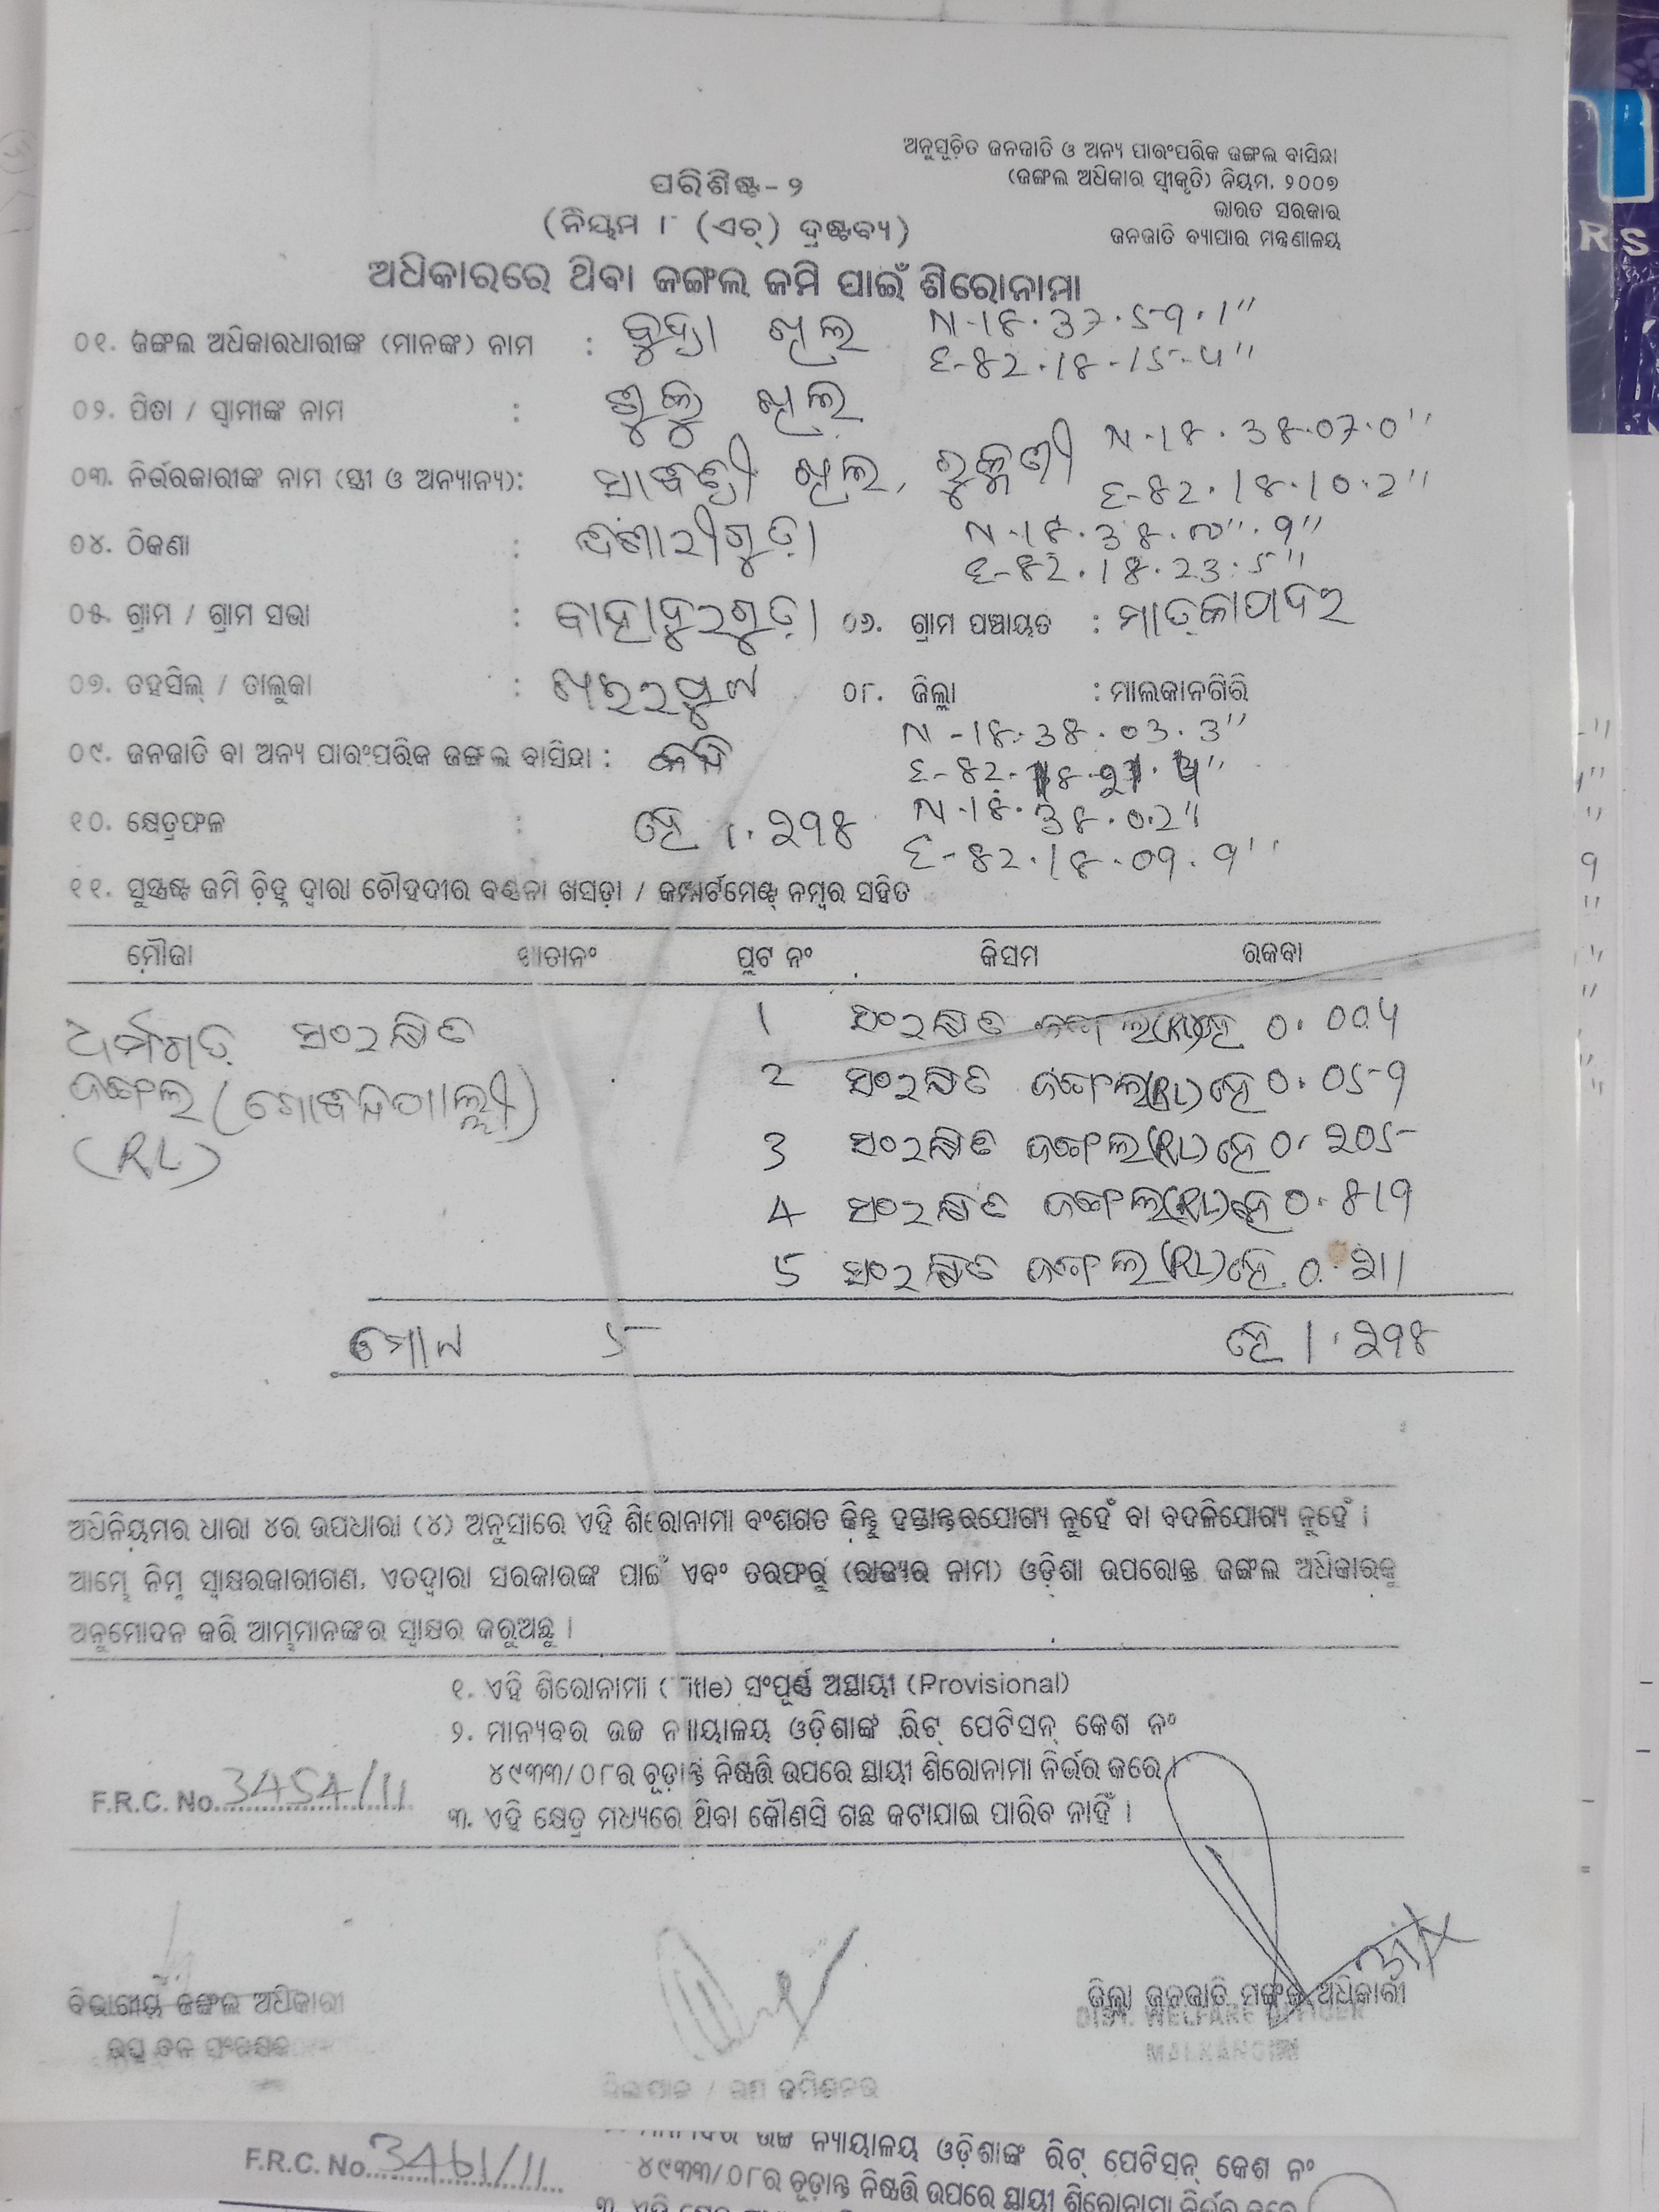 ଅନୁସୂଚିତ ଜନଜାତି ଓ ଅନ୍ୟ ପାରଂପରିକ ଜଙ୍ଗଲ ବାସିନ୍ଦା
(ଜଙ୍ଗଲ ଅଧିକାର ସ୍ୱୀକୃତି) ନିୟମ, ୨୦୦୭
ଭାରତ ସରକାର
ଜନଜାତି ବ୍ୟାପାର ମନ୍ତ୍ରଣାଳୟ
ପରିଶିଷ୍ଟ-୨
(ନିୟମ ୮ (ଏଚ୍) ଦ୍ରଷ୍ଟବ୍ୟ)
ଅଧିକାରରେ ଥିବା ଜଙ୍ଗଲ ଜମି ପାଇଁ ଶିରୋନାମା
୦୧. ଜଙ୍ଗଲ ଅଧିକାରଧାରୀଙ୍କ (ମାନଙ୍କ) ନାମ : ବୁଦ୍ରା ଖିଲ N-18.37.59.1"
E-82.18.15.4"
୦୨. ପିତା / ସ୍ୱାମୀଙ୍କ ନାମ : ଖିଲ
N-18.38.07.0"
୦୩. ନିର୍ଭରକାରୀଙ୍କ ନାମ (ସ୍ତ୍ରୀ ଓ ଅନ୍ୟାନ୍ୟ): ଖିଲ, E-82.18.10.2"
୦୪. ଠିକଣା : N-18.38. "
E-82.18.23.5"
୦୫. ଗ୍ରାମ / ଗ୍ରାମ ସଭା : ୦୬. ଗ୍ରାମ ପଞ୍ଚାୟତ : ମାତ୍କାପାଦର
୦୭. ତହସିଲ୍ / ତାଲୁକା : ଖଇରପୁଟ ୦୮. ଜିଲ୍ଲା : ମାଲକାନଗିରି
N-18.38.03.3"
୦୯. ଜନଜାତି ବା ଅନ୍ୟ ପାରଂପରିକ ଜଙ୍ଗଲ ବାସିନ୍ଦା : E-82.
N-18.38.0.2"
୧୦. କ୍ଷେତ୍ରଫଳ : ହେ ୧.୨୭୫
E-82.18.09.9"
୧୧. ସୁସ୍ପଷ୍ଟ ଜମି ଚିହ୍ନ ଦ୍ୱାରା ଚୌହଦୀର ବର୍ଣ୍ଣନା ଖସଡ଼ା / କମ୍ପାର୍ଟମେଣ୍ଟ୍ ନମ୍ବର ସହିତ
ମୌଜା ଖାତାନଂ ପ୍ଲଟ ନଂ କିସମ ରକବା
ଧର୍ମଗଡ଼ ସଂରକ୍ଷିତ 1 ସଂରକ୍ଷିତ ଜଙ୍ଗଲ(RL)ହେ ୦.
ଜଙ୍ଗଲ (ଗୋବିନ୍ଦପାଲ୍ଲୀ) 2 ସଂରକ୍ଷିତ ଜଙ୍ଗଲ(RL)ହେ ୦.
(RL) 3 ସଂରକ୍ଷିତ ଜଙ୍ଗଲ(RL)ହେ ୦.
4 ସଂରକ୍ଷିତ ଜଙ୍ଗଲ(RL)ହେ ୦.
5 ସଂରକ୍ଷିତ ଜଙ୍ଗଲ(RL)ହେ ୦.
ମୋଟ ୫ ହେ ୧.୨୭୫
ଅଧିନିୟମର ଧାରା ୪ର ଉପଧାରା (୪) ଅନୁସାରେ ଏହି ଶିରୋନାମା ବଂଶଗତ କିନ୍ତୁ ହସ୍ତାନ୍ତରଯୋଗ୍ୟ ନୁହେଁ ବା ବଦଳିଯୋଗ୍ୟ ନୁହେଁ ।
ଆମ୍ଭେ ନିମ୍ନ ସ୍ୱାକ୍ଷରକାରୀଗଣ, ଏତଦ୍ୱାରା ସରକାରଙ୍କ ପାଇଁ ଏବଂ ତରଫରୁ (ରାଜ୍ୟର ନାମ) ଓଡ଼ିଶା ଉପରୋକ୍ତ ଜଙ୍ଗଲ ଅଧିକାରକୁ
ଅନୁମୋଦନ କରି ଆମ୍ଭମାନଙ୍କର ସ୍ୱାକ୍ଷର କରୁଅଛୁ ।
୧. ଏହି ଶିରୋନାମା (Title) ସଂପୂର୍ଣ୍ଣ ଅସ୍ଥାୟୀ (Provisional)
୨. ମାନ୍ୟବର ଉଚ୍ଚ ନ୍ୟାୟାଳୟ ଓଡ଼ିଶାଙ୍କ ରିଟ୍ ପେଟିସନ୍ କେଶ ନଂ
୪୯୩୩/୦୮ର ଚୂଡ଼ାନ୍ତ ନିଷ୍ପତ୍ତି ଉପରେ ସ୍ଥାୟୀ ଶିରୋନାମା ନିର୍ଭର କରେ ।
F.R.C. No. 3454/11
୩. ଏହି କ୍ଷେତ୍ର ମଧ୍ୟରେ ଥିବା କୌଣସି ଗଛ କଟାଯାଇ ପାରିବ ନାହିଁ ।
ବିଭାଗୀୟ ଜଙ୍ଗଲ ଅଧିକାରୀ ଜିଲ୍ଲା ଜନଜାତି ମଙ୍ଗଳ ଅଧିକାରୀ
DIST. WELFARE OFFICER
ଉପ ବନ ସଂରକ୍ଷକ MALKANGIRI
ଜିଲ୍ଲାପାଳ / ଉପ କମିଶନର
F.R.C. No. 3461/11
ଉଚ୍ଚ ନ୍ୟାୟାଳୟ ଓଡ଼ିଶାଙ୍କ ରିଟ୍ ପେଟିସନ୍ କେଶ ନଂ
୪୯୩୩/୦୮ର ଚୂଡ଼ାନ୍ତ ନିଷ୍ପତ୍ତି ଉପରେ ସ୍ଥାୟୀ ଶିରୋନାମା ନିର୍ଭର କରେ
RS